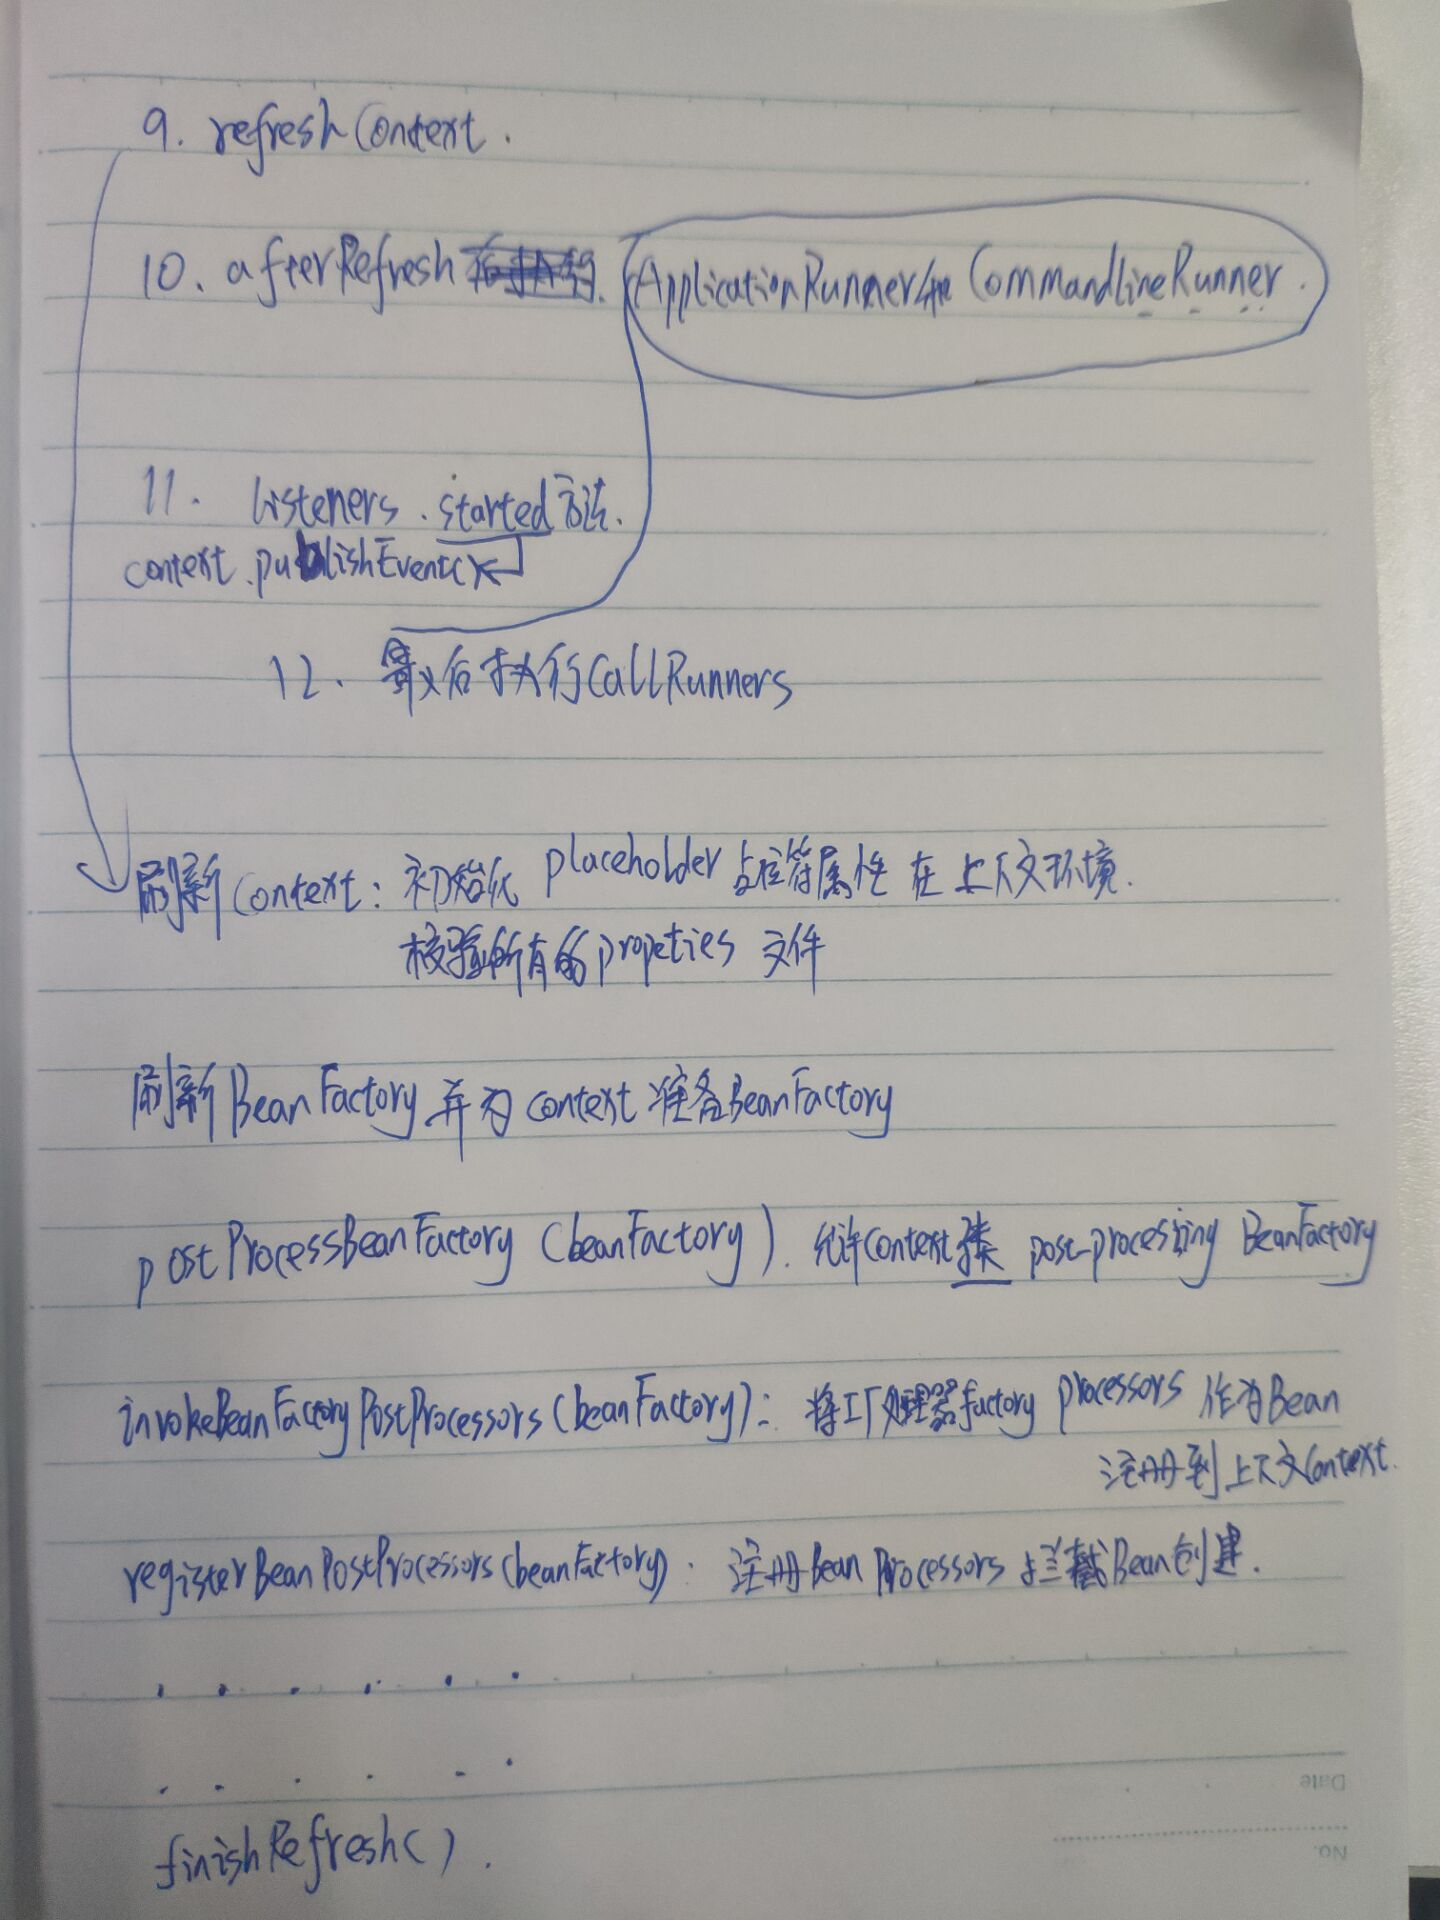 9. refreshContext.
10. afterRefresh ApplicationRunner/和 CommandLineRunner.
11. listeners.started方法.
context.publishEvent()
12. 最后执行CallRunners
刷新Context: 初始化 placeholder占位符属性 在上下文环境.
校验所有的propeties 文件
刷新BeanFactory并为context准备BeanFactory
postProcessBeanFactory (beanFactory). 允许context post-processing BeanFactory
invokeBeanFactoryPostProcessors(beanFactory): 将工厂处理器factory processors 作为Bean
注册到上下文Context.
registerBeanPostProcessors(beanFactory): 注册Bean Processors 拦截Bean创建.
. . . . . .
. . . . . .
finishRefresh().
Date
No.